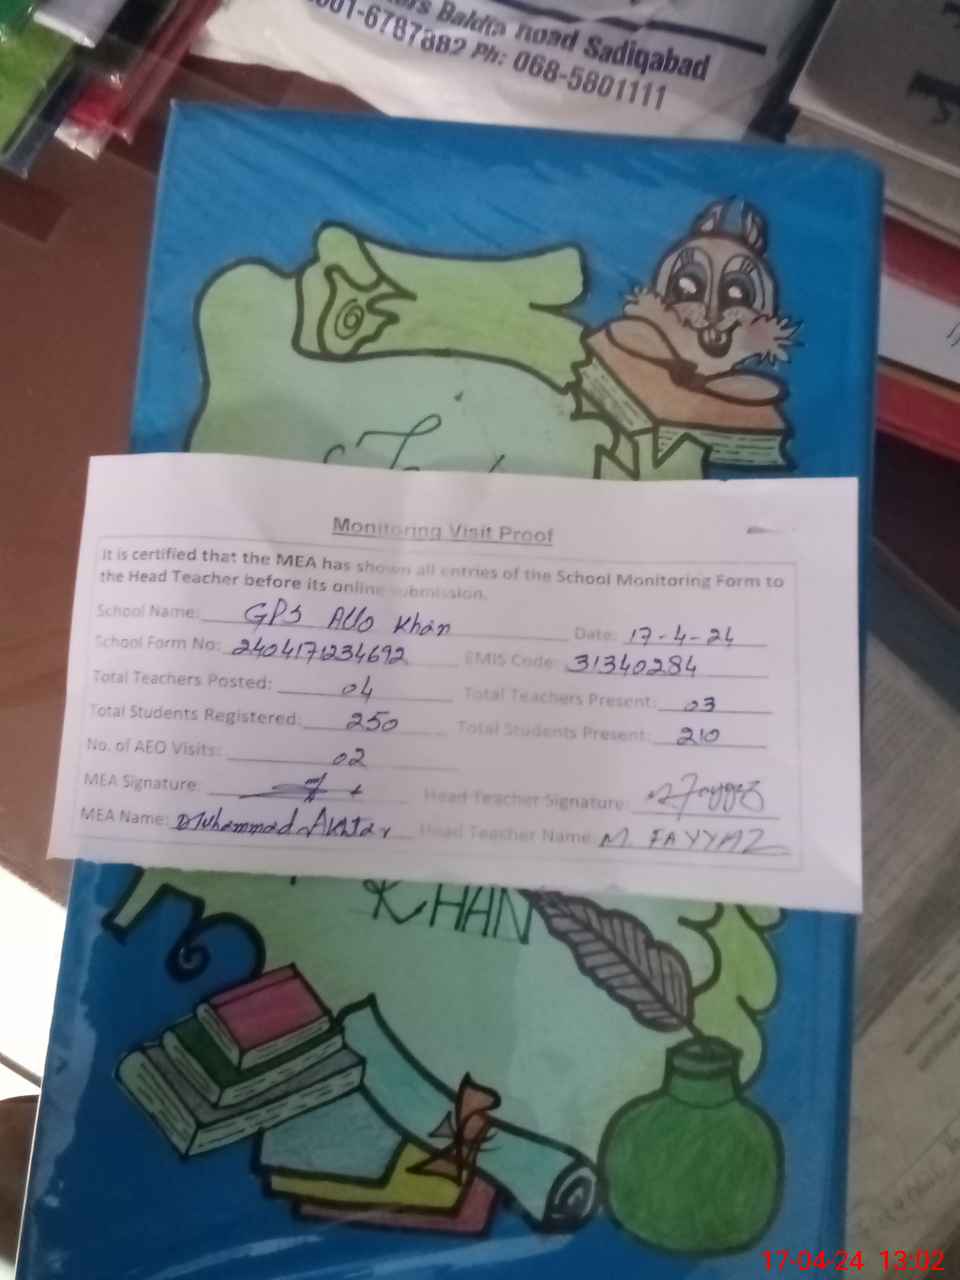 ers Baldia Road Sadiqabad
001-6787382 Ph: 068-5801111
Monitoring Visit Proof
It is certified that the MEA has shown all entries of the School Monitoring Form to
the Head Teacher before its online submission.
School Name: GPS Allo Khan Date: 17-4-24
School Form No: 2404171234692 EMIS Code: 31340284
Total Teachers Posted: 04 Total Teachers Present: 03
Total Students Registered: 250 Total Students Present: 210
No. of AEO Visits: 02
MEA Signature: Head Teacher Signature: Fayyaz
MEA Name: Muhammad Akhtar Head Teacher Name: M. FAYYAZ
KHAN
17-04-24 13:02